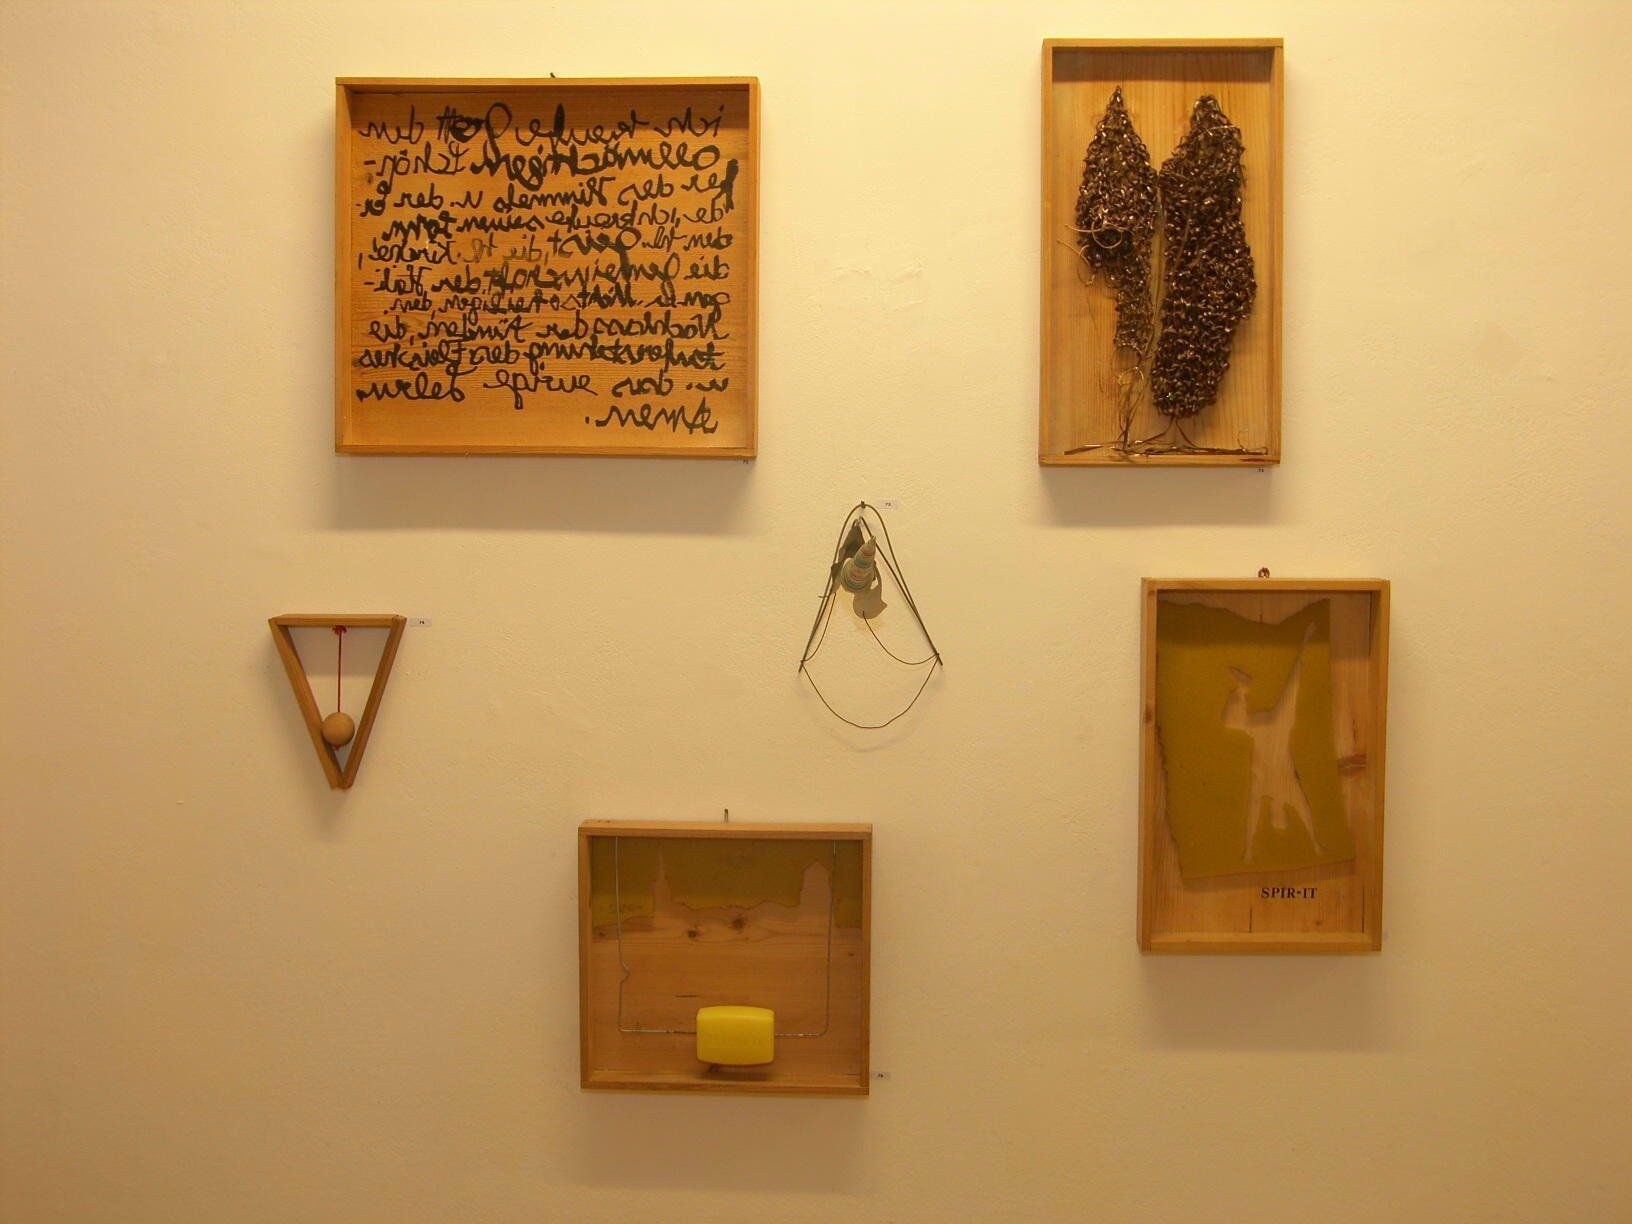 ich brauche Gott den
allmächtigen Schöp-
fer des Himmels u. der Er-
de, ich brauche seinen Sohn
den hl. Geist, die hl. Kirche,
die Gemeinschaft der Heili-
gen u. Nichtsoheiligen, den
Nachlass der Sünden, die
Auferstehung des Fleisches
u. das ewige Leben.
Amen.
SPIR-IT